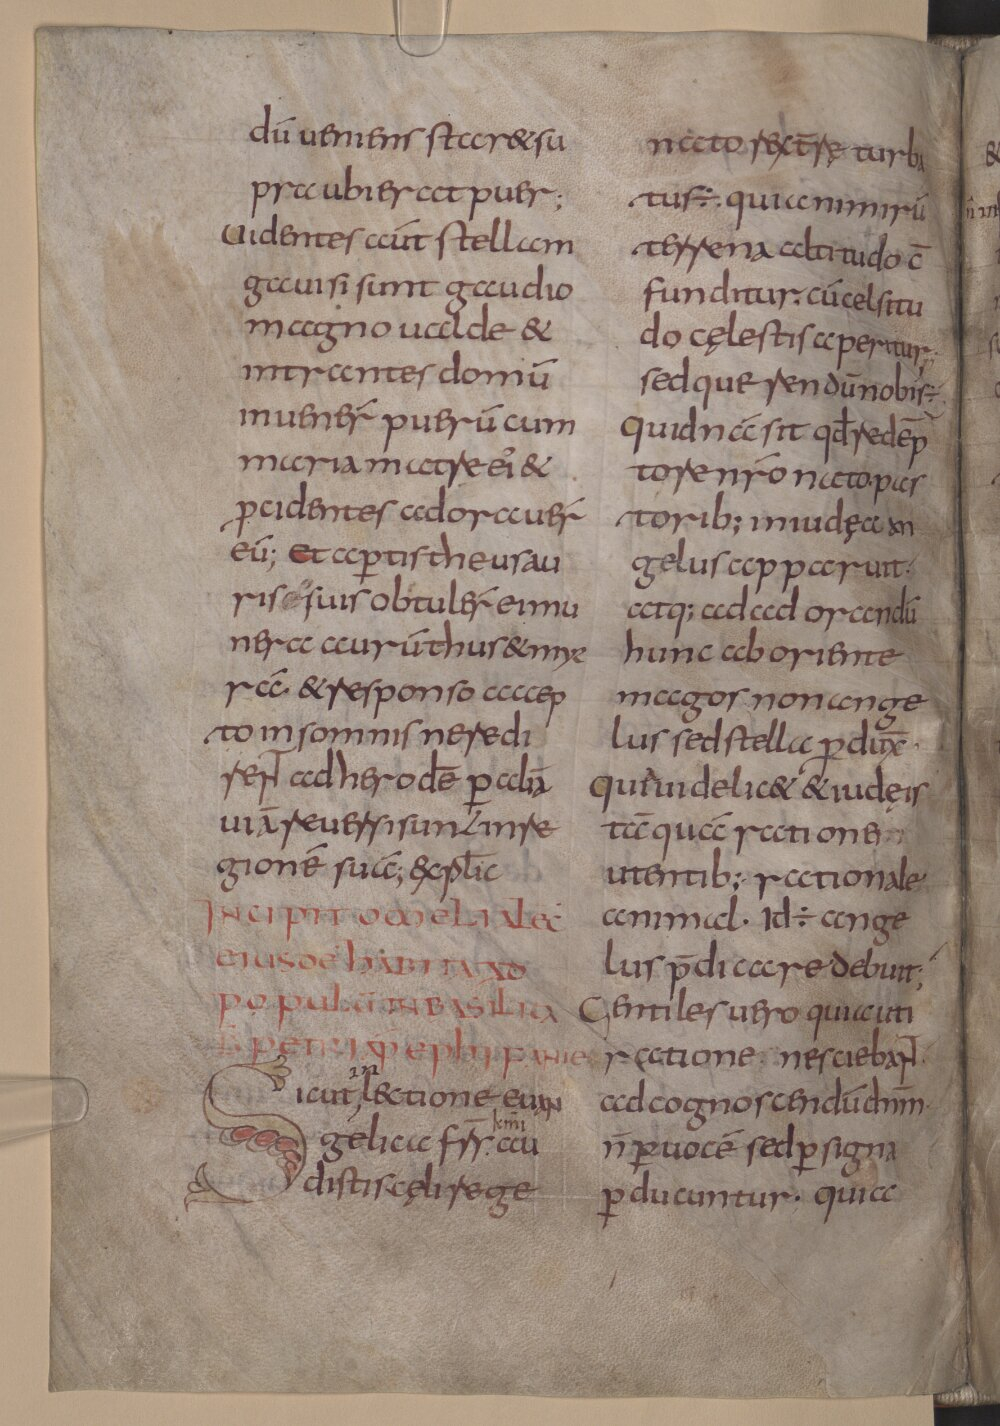 dū ueniens staret su
pra ubi erat puer;
Uidentes aūt stellam
gauisi sunt gaudio
magno ualde &
intrantes domū
inuener̄ puerū cum
maria matre ei' &
p̱cidentes adorauer̄
eū; Et ap̱tis thesau
ris suis obtuler̄ ei mu
nera aurū thus & myr
rā. & responso accep
to in somnis ne redi
ren̄t ad herodē p̱ aliā
uiā reuersi sunt in re
gionē suā; explic̄
Incipit omelia lec̄
eiusdē habita ad
populū in basilica
b̄ petri ap̄ epiphanie
Sicut in lectione euan
gelica fr̄s k̄mi au
distis cęli rege
nato rex t̄rę turba
tus ÷. quia nimirū
terrena altitudo c̄
funditur. cū celsitu
do cęlestis aperitur;
sed querendū nobis ÷.
Quidnā sit qd̄ redēp
tore nr̄o nato. pas
torib; in iudęa an
gelus apparuit.
atq; ad adorandū
hunc ab oriente
magos non ange
lus sed stella p̱dux̄.
Quia uidelic& & iudęis
tāquā ratione
utentib; rationale
animal. Id ÷ ange
lus p̄dicare debuit;
Gentiles uero quia uti
ratione nesciebant̄.
ad cognoscendū dn̄m.
n̄ p̱ uocē sed p̱ signa
p̱ducuntur. quia